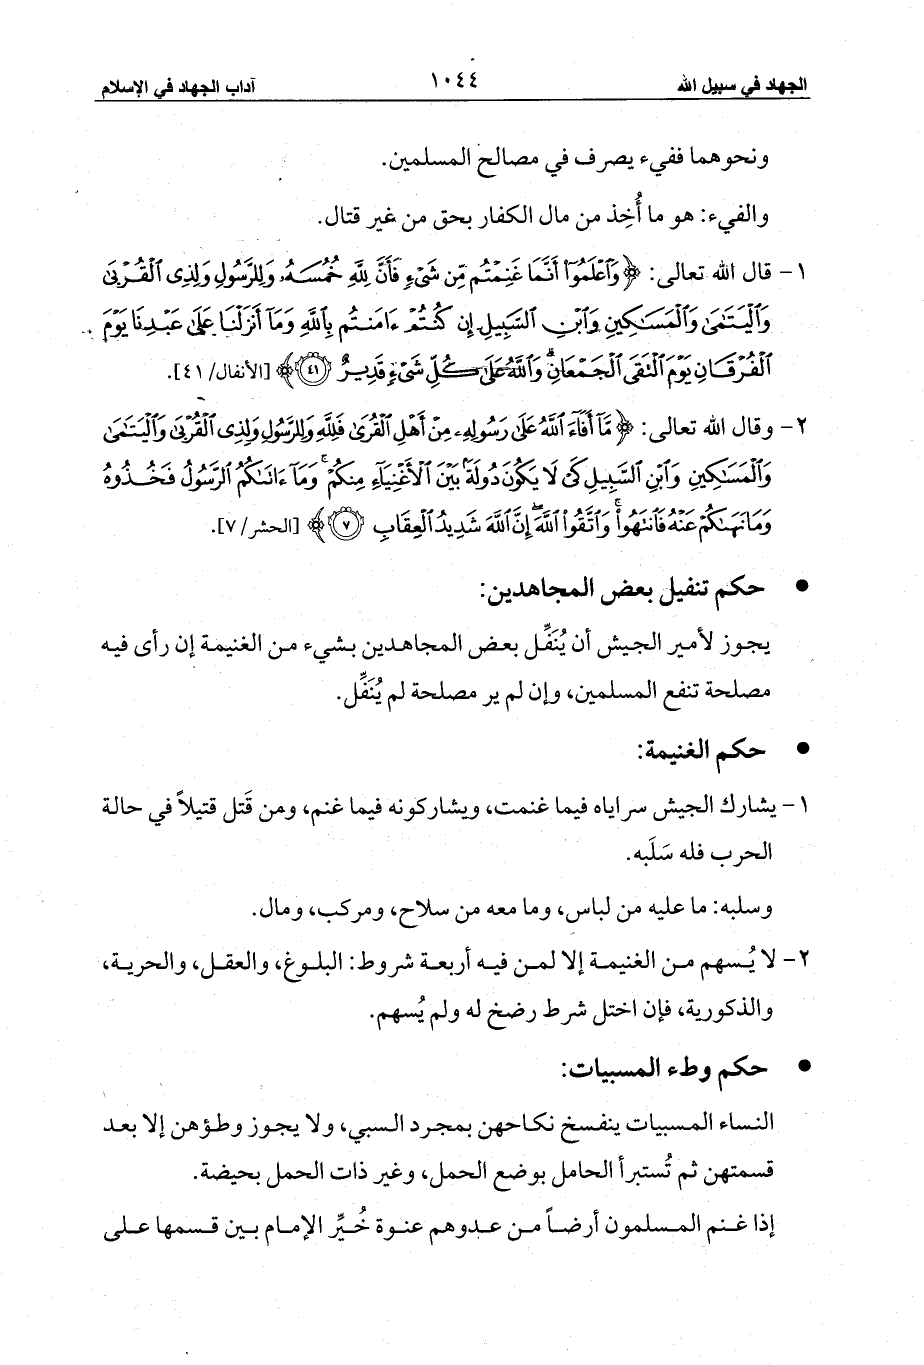 الجهاد في سبيل الله ١٠٤٤ آداب الجهاد في الإسلام
ونحوهما ففيء يصرف في مصالح المسلمين.
والفيء: هو ما أُخِذ من مال الكفار بحق من غير قتال.
١- قال الله تعالى: ﴿ وَٱعْلَمُوٓا۟ أَنَّمَا غَنِمْتُم مِّن شَىْءٍ فَأَنَّ لِلَّهِ خُمُسَهُۥ وَلِلرَّسُولِ وَلِذِى ٱلْقُرْبَىٰ
وَٱلْيَتَـٰمَىٰ وَٱلْمَسَـٰكِينِ وَٱبْنِ ٱلسَّبِيلِ إِن كُنتُمْ ءَامَنتُم بِٱللَّهِ وَمَآ أَنزَلْنَا عَلَىٰ عَبْدِنَا يَوْمَ
ٱلْفُرْقَانِ يَوْمَ ٱلْتَقَى ٱلْجَمْعَانِ ۗ وَٱللَّهُ عَلَىٰ كُلِّ شَىْءٍ قَدِيرٌ ٤١ ﴾ [الأنفال/ ٤١].
٢- وقال الله تعالى: ﴿ مَّآ أَفَآءَ ٱللَّهُ عَلَىٰ رَسُولِهِۦ مِنْ أَهْلِ ٱلْقُرَىٰ فَلِلَّهِ وَلِلرَّسُولِ وَلِذِى ٱلْقُرْبَىٰ وَٱلْيَتَـٰمَىٰ
وَٱلْمَسَـٰكِينِ وَٱبْنِ ٱلسَّبِيلِ كَىْ لَا يَكُونَ دُولَةًۢ بَيْنَ ٱلْأَغْنِيَآءِ مِنكُمْ ۚ وَمَآ ءَاتَىٰكُمُ ٱلرَّسُولُ فَخُذُوهُ
وَمَا نَهَىٰكُمْ عَنْهُ فَٱنتَهُوا۟ ۚ وَٱتَّقُوا۟ ٱللَّهَ ۖ إِنَّ ٱللَّهَ شَدِيدُ ٱلْعِقَابِ ٧ ﴾ [الحشر/ ٧].
● حكم تنفيل بعض المجاهدين:
يجوز لأمير الجيش أن يُنَفِّل بعض المجاهدين بشيء من الغنيمة إن رأى فيه
مصلحة تنفع المسلمين، وإن لم ير مصلحة لم يُنَفِّل.
● حكم الغنيمة:
١- يشارك الجيش سراياه فيما غنمت، ويشاركونه فيما غنم، ومن قَتل قتيلاً في حالة
الحرب فله سَلَبه.
وسلبه: ما عليه من لباس، وما معه من سلاح، ومركب، ومال.
٢- لا يُسهم من الغنيمة إلا لمن فيه أربعة شروط: البلوغ، والعقل، والحرية،
والذكورية، فإن اختل شرط رضخ له ولم يُسهم.
● حكم وطء المسبيات:
النساء المسبيات ينفسخ نكاحهن بمجرد السبي، ولا يجوز وطؤهن إلا بعد
قسمتهن ثم تُستبرأ الحامل بوضع الحمل، وغير ذات الحمل بحيضة.
إذا غنم المسلمون أرضاً من عدوهم عنوة خُيِّر الإمام بين قسمها على